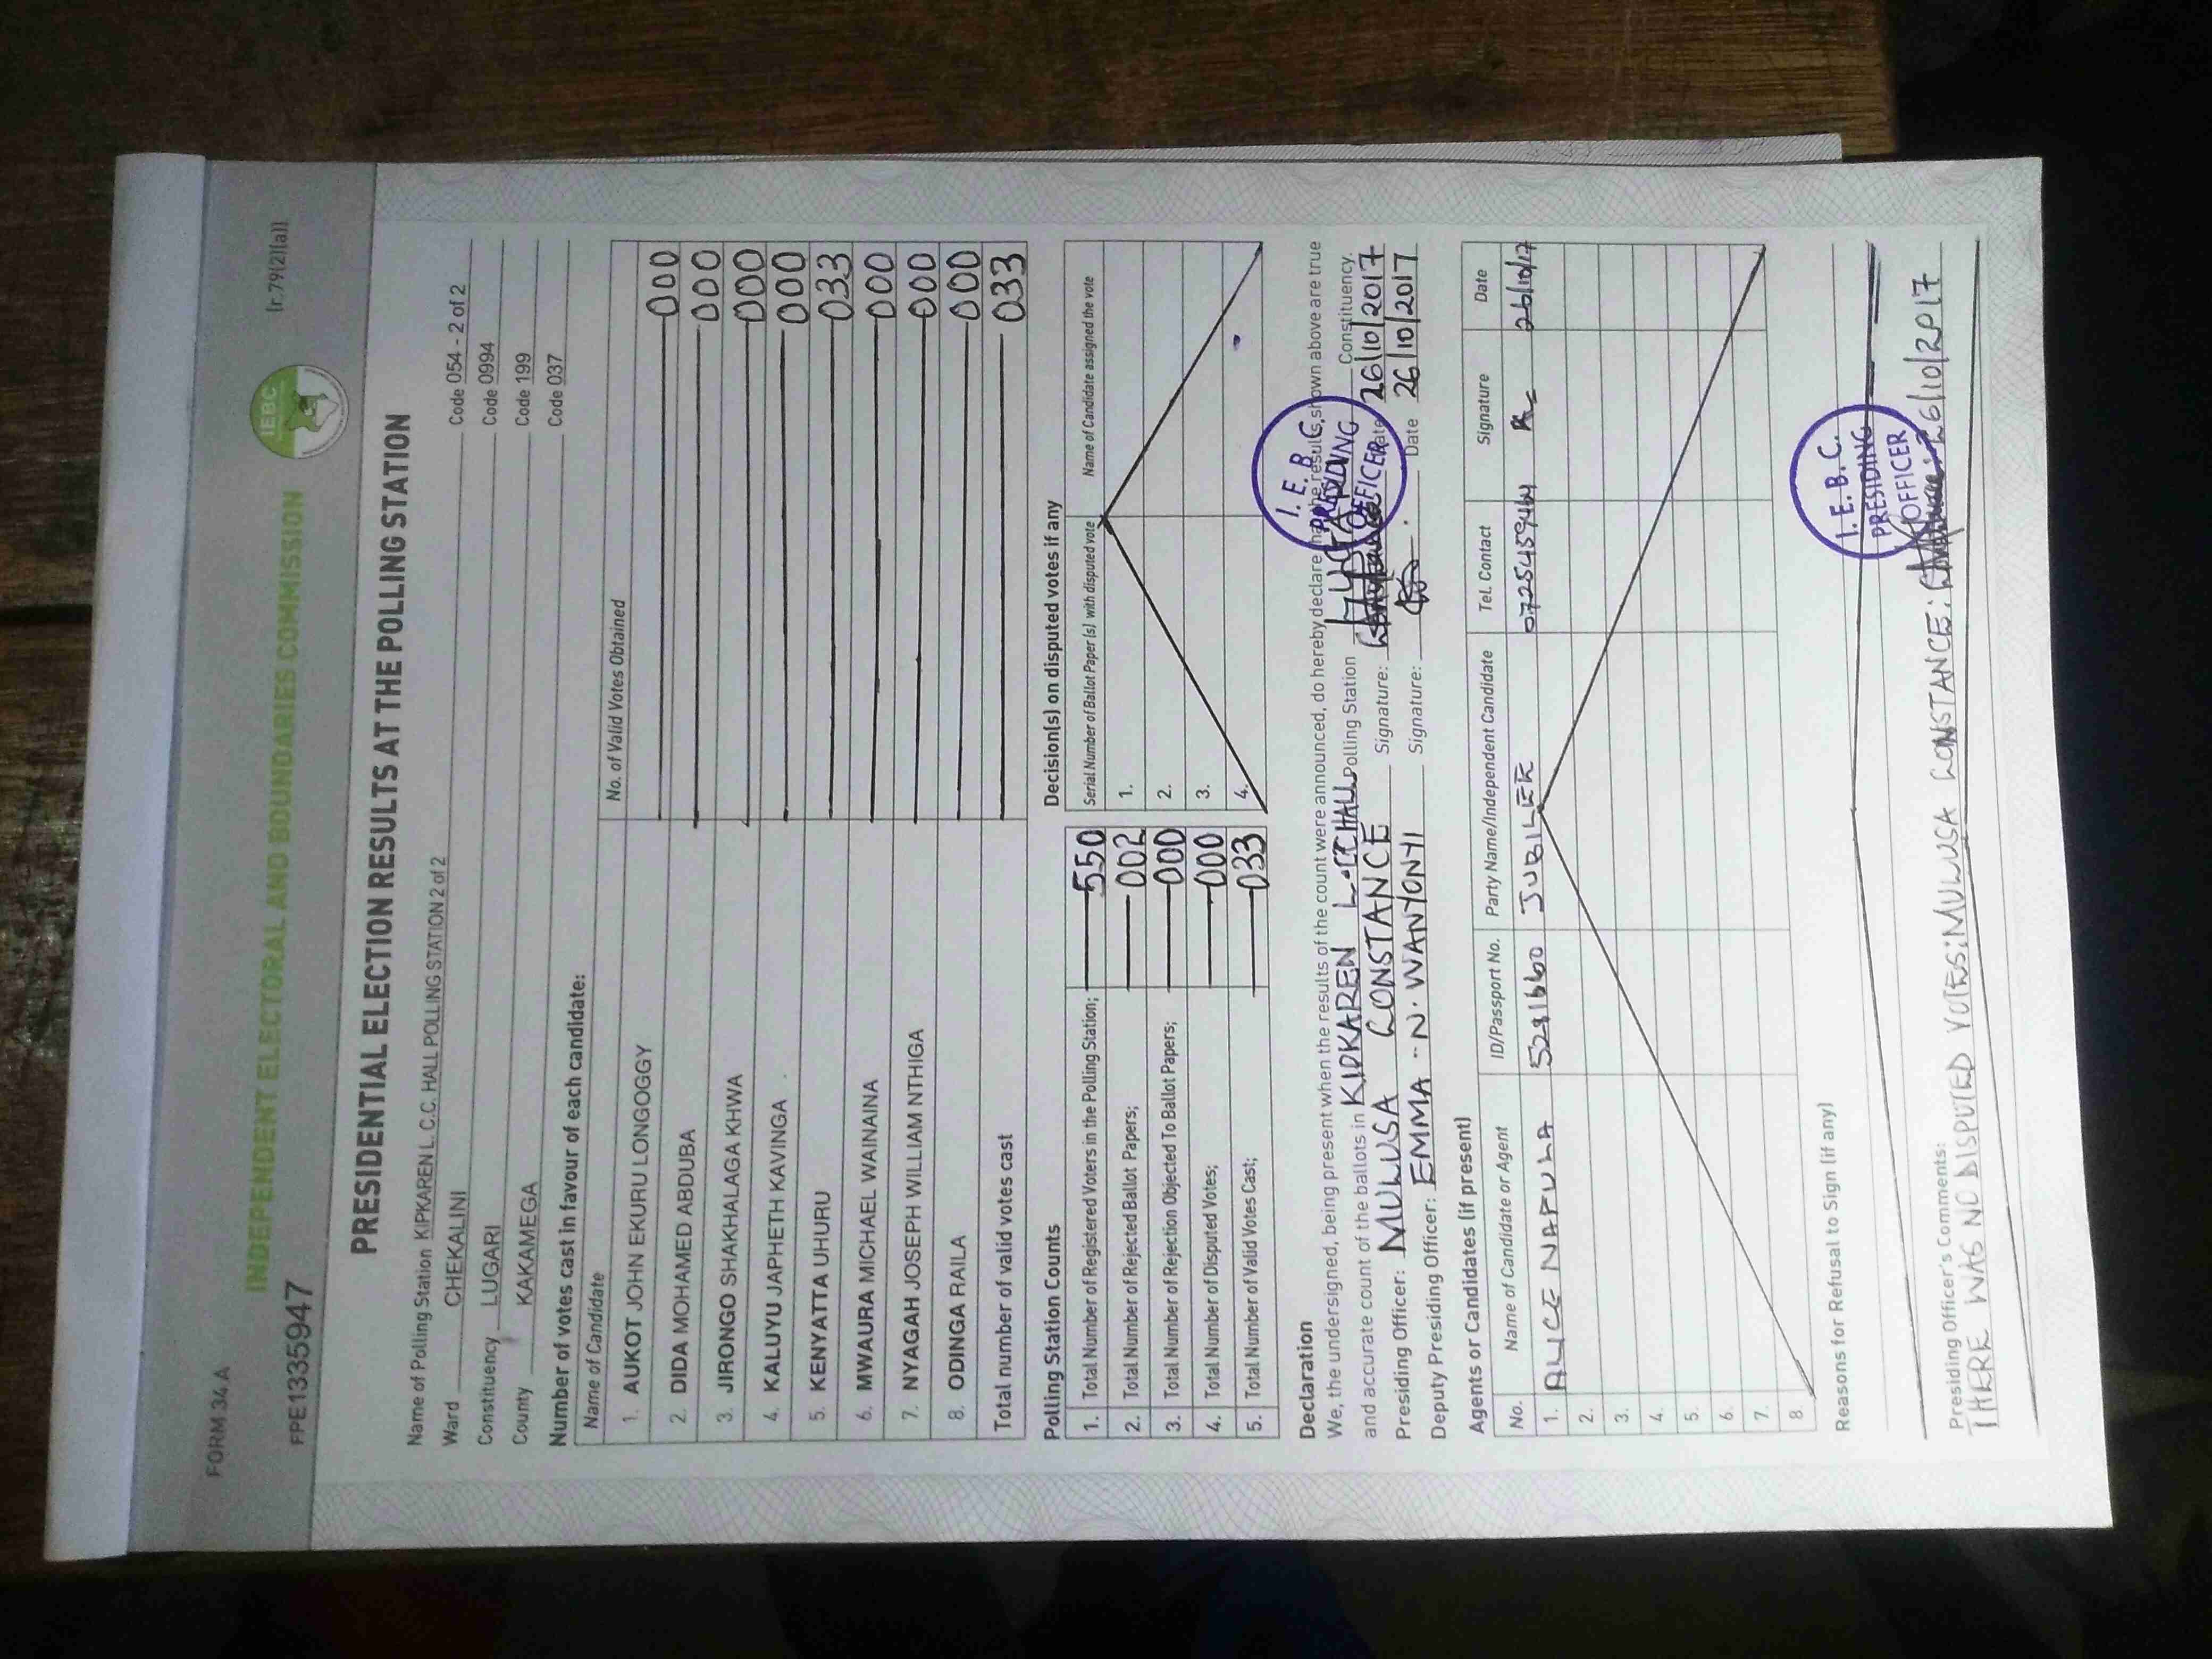 FORM 34 A
(r.79(2)(a))
IEBC
INDEPENDENT ELECTORAL AND BOUNDARIES COMMISSION
FPE1335947
PRESIDENTIAL ELECTION RESULTS AT THE POLLING STATION
Name of Polling Station KIPKAREN L. C.C. HALL POLLING STATION 2 of 2 Code 054 - 2 of 2
Ward CHEKALINI Code 0994
Constituency LUGARI Code 199
County KAKAMEGA Code 037
Number of votes cast in favour of each candidate:
Name of Candidate No. of Valid Votes Obtained
1. AUKOT JOHN EKURU LONGOGGY 000
2. DIDA MOHAMED ABDUBA 000
3. JIRONGO SHAKHALAGA KHWA 000
4. KALUYU JAPHETH KAVINGA 000
5. KENYATTA UHURU 033
6. MWAURA MICHAEL WAINAINA 000
7. NYAGAH JOSEPH WILLIAM NTHIGA 000
8. ODINGA RAILA 000
Total number of valid votes cast 033
Polling Station Counts
1. Total Number of Registered Voters in the Polling Station; 550
2. Total Number of Rejected Ballot Papers; 002
3. Total Number of Rejection Objected To Ballot Papers; 000
4. Total Number of Disputed Votes; 000
5. Total Number of Valid Votes Cast; 033
Decision(s) on disputed votes if any
Serial Number of Ballot Paper (s) with disputed vote Name of Candidate assigned the vote
1.
2.
3.
4.
Declaration
We, the undersigned, being present when the results of the count were announced, do hereby declare that the results shown above are true
and accurate count of the ballots in KIPKAREN L.CC HALL Polling Station LUGARI Constituency.
Presiding Officer: MULUSA CONSTANCE Signature: Date 26/10/2017
Deputy Presiding Officer: EMMA - N. WANYONYI Signature: Date 26/10/2017
I. E. B. C.
PRESIDING
OFFICER
Agents or Candidates (if present)
No. Name of Candidate or Agent ID/Passport No. Party Name/Independent Candidate Tel. Contact Signature Date
1. ALICE NAFULA JUBILEE 26/10/17
2.
3.
4.
5.
6.
7.
8.
Reasons for Refusal to Sign (if any)
I. E. B. C.
PRESIDING
OFFICER
Presiding Officer's Comments:
THERE WAS NO DISPUTED VOTES: MULUSA CONSTANCE: 26/10/2017